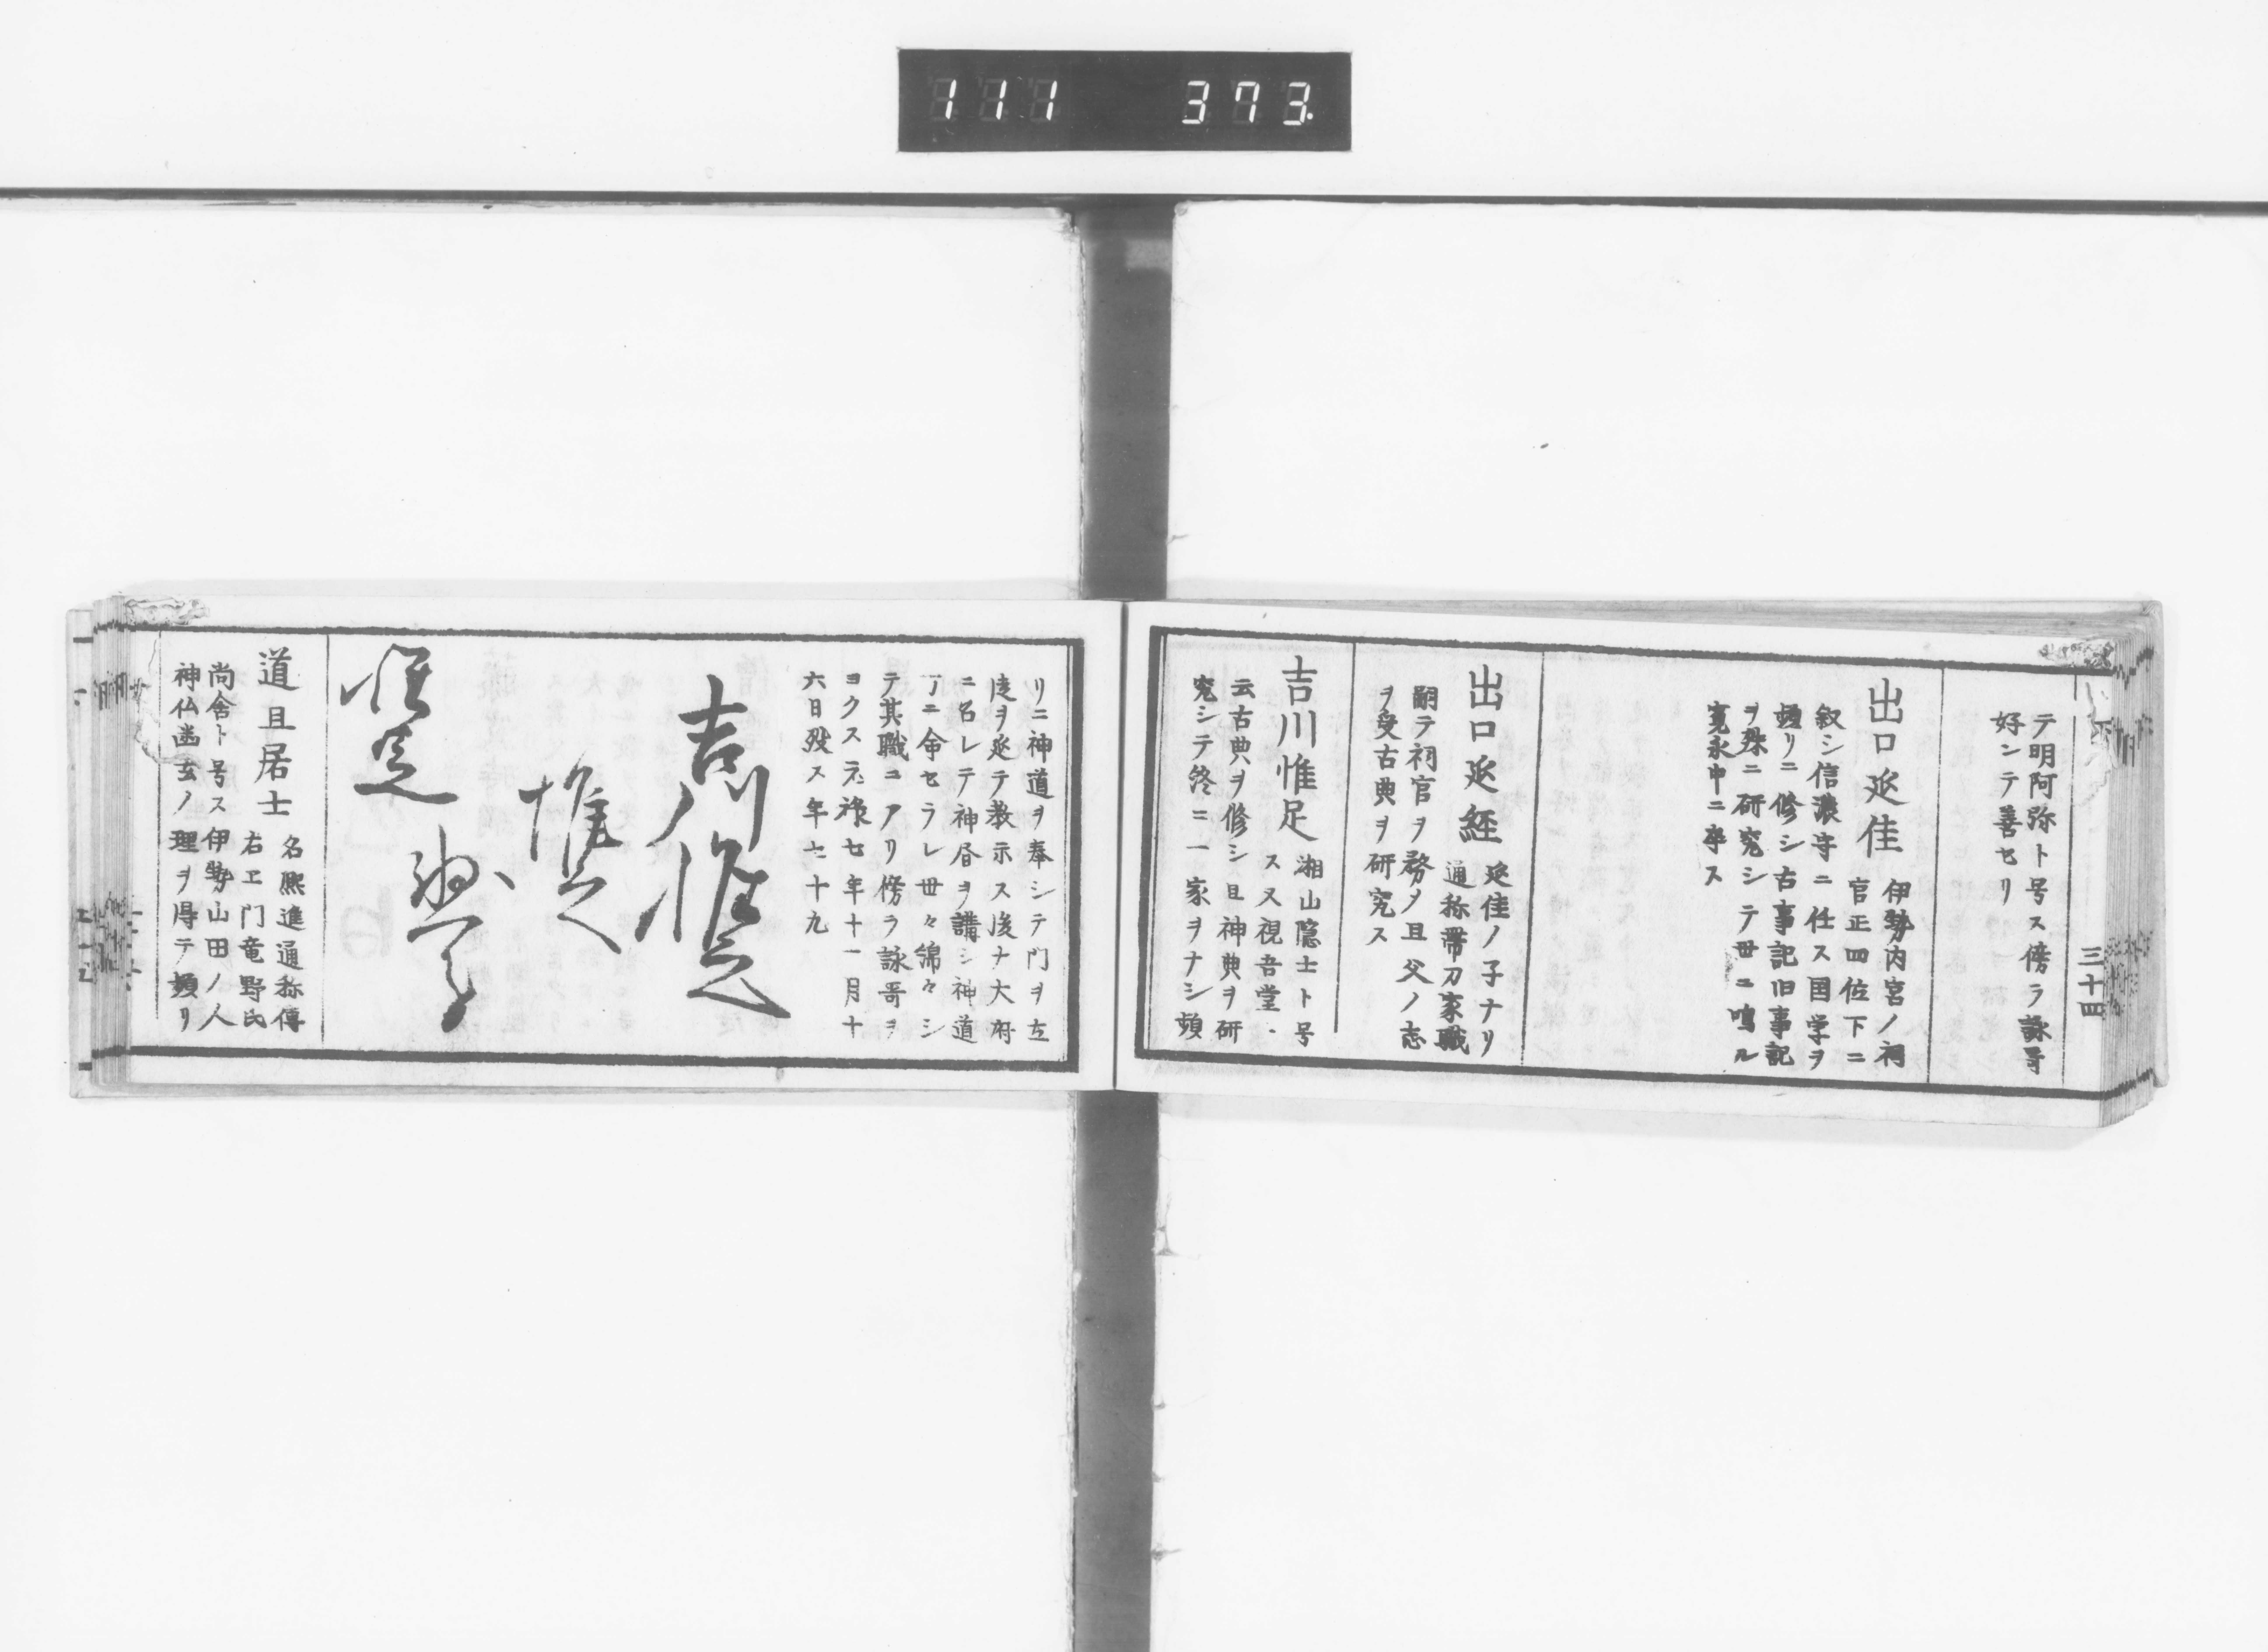 111 373
三十四
テ明阿弥ト号ス傍ラ詠哥
好ンテ善セリ
出口延佳
伊勢内宮ノ祠
官正四位下ニ
叙シ信濃守ニ任ス国学ヲ
頻リニ修シ古事記旧事記
ヲ殊ニ研究シテ世ニ鳴ル
寛永中ニ卒ス
出口延経
延佳ノ子ナリ
通称帯刀家職
嗣テ祠官ヲ務メ且父ノ志
ヲ受古典ヲ研究ス
吉川惟足
湘山隠士ト号
ス又視吾堂・
云古典ヲ修シ且神典ヲ研
究シテ終ニ一家ヲナシ頻
リニ神道ヲ奉シテ門ヲ立
徒ヲ延テ教示ス後ナ大府
ニ召レテ神昏ヲ講シ神道
丁ニ命セラレ世々綿々シ
テ其職ニアリ傍ラ詠哥ヲ
ヨクス元禄七年十一月十
六日歿ス年七十九
吉川惟足
惟足
惟足
道且居士
名熈進通称傳
右エ門竜野氏
尚舎ト号ス伊勢山田ノ人
神仏幽玄ノ理ヲ得テ頻リ